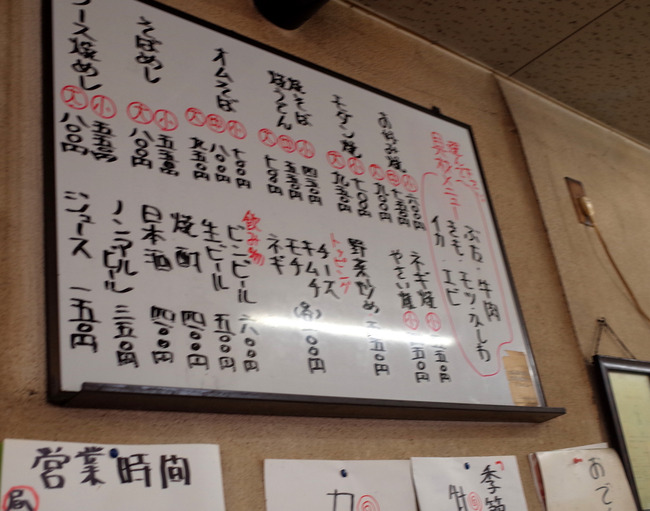 ぶた・牛肉
きも・モツ・ずしも
イカ・エビ
お好み焼
小 六〇〇円
中 七五〇円
大 九〇〇円
モダン焼
小 七〇〇円
大 九五〇円
焼そば
焼うどん
小 四五〇円
中 五五〇円
大 七〇〇円
オムそば
小 七〇〇円
中 八〇〇円
大 九五〇円
そばめし
小 五五〇円
大 八〇〇円
ソース焼めし
小 五五〇円
大 八〇〇円
ネギ焼 小
やさい焼 小
野菜炒め
トッピング
チーズ
キムチ
モチ
ネギ
(各)一〇〇円
飲み物
ビンビール 六〇〇円
生ビール 五〇〇円
焼酎 四〇〇円
日本酒 四〇〇円
ノンアルビール 三五〇円
ジュース 一五〇円
営業時間
カ
季節
おで